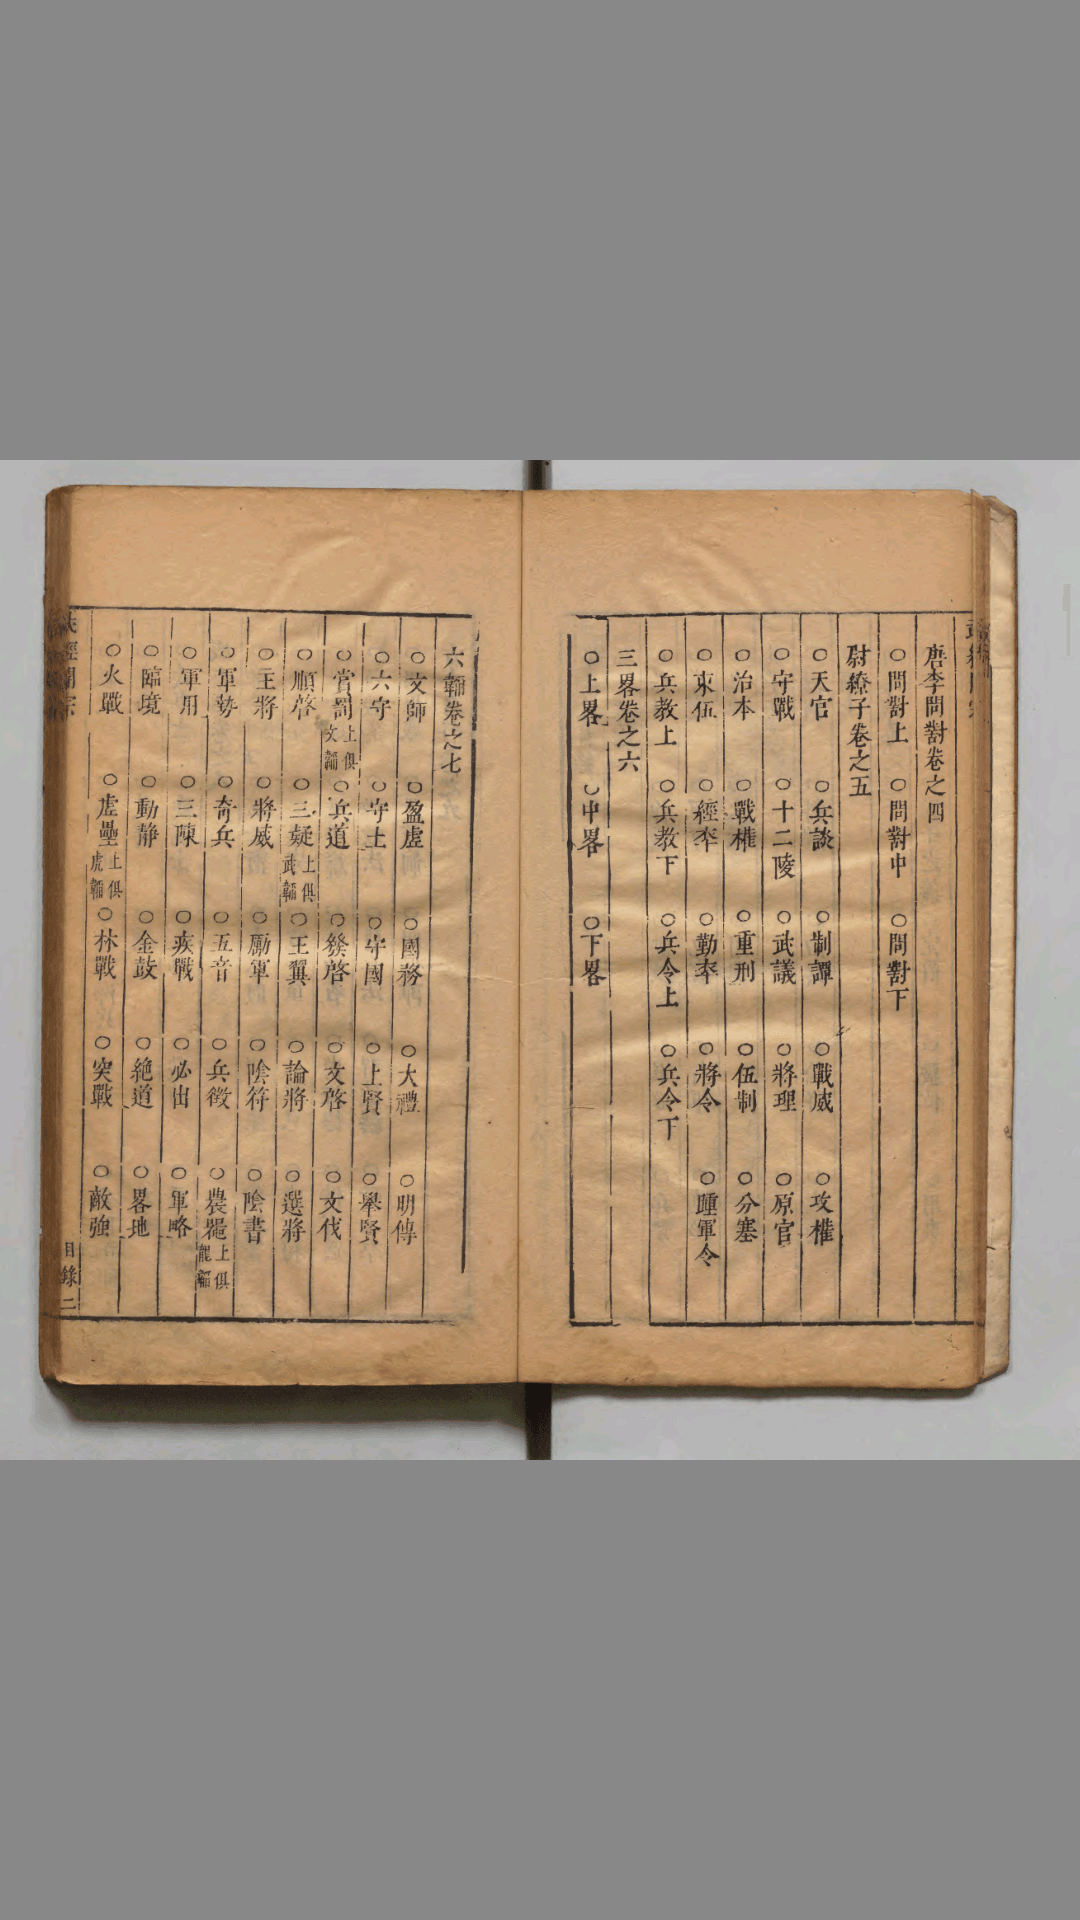 唐李問對卷之四
○問對上 ○問對中 ○問對下
尉繚子卷之五
○天官 ○兵談 ○制譚 ○戰威 ○攻權
○守戰 ○十二陵 ○武議 ○將理 ○原官
○治本 ○戰權 ○重刑 ○伍制 ○分塞
○束伍 ○經卒 ○勤卒 ○將令 ○踵軍令
○兵教上 ○兵教下 ○兵令上 ○兵令下
三畧卷之六
○上畧 ○中畧 ○下畧
六韜卷之七
○文師 ○盈虛 ○國務 ○大禮 ○明傳
○六守 ○守土 ○守國 ○上賢 ○舉賢
○賞罰 上俱文韜 ○兵道 ○發啓 ○文啓 ○文伐
○順啓 ○三疑 上俱武韜 ○王翼 ○論將 ○選將
○主將 ○將威 ○勵軍 ○陰符 ○陰書
○軍勢 ○奇兵 ○五音 ○兵徵 ○農器 上俱龍韜
○軍用 ○三陳 ○疾戰 ○必出 ○軍略
○臨境 ○動靜 ○金鼓 ○絶道 ○畧地
○火戰 ○虛壘 上俱虎韜 ○林戰 ○突戰 ○敵強
經開宗 目錄 二